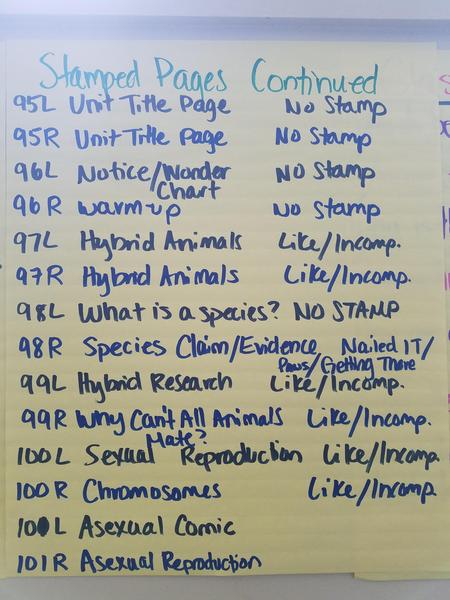 Stamped Pages Continued
95L Unit Title Page No Stamp
95R Unit Title Page No Stamp
96L Notice/Wonder Chart No Stamp
96R Warm-up No Stamp
97L Hybrid Animals Like/Incomp.
97R Hybrid Animals Like/Incomp.
98L What is a species? NO STAMP
98R Species Claim/Evidence Nailed IT/
Paws/Getting There
99L Hybrid Research Like/Incomp.
99R Why Can't All Animals Mate? Like/Incomp.
100L Sexual Reproduction Like/Incomp.
100R Chromosomes Like/Incomp
101L Asexual Comic
101R Asexual Reproduction